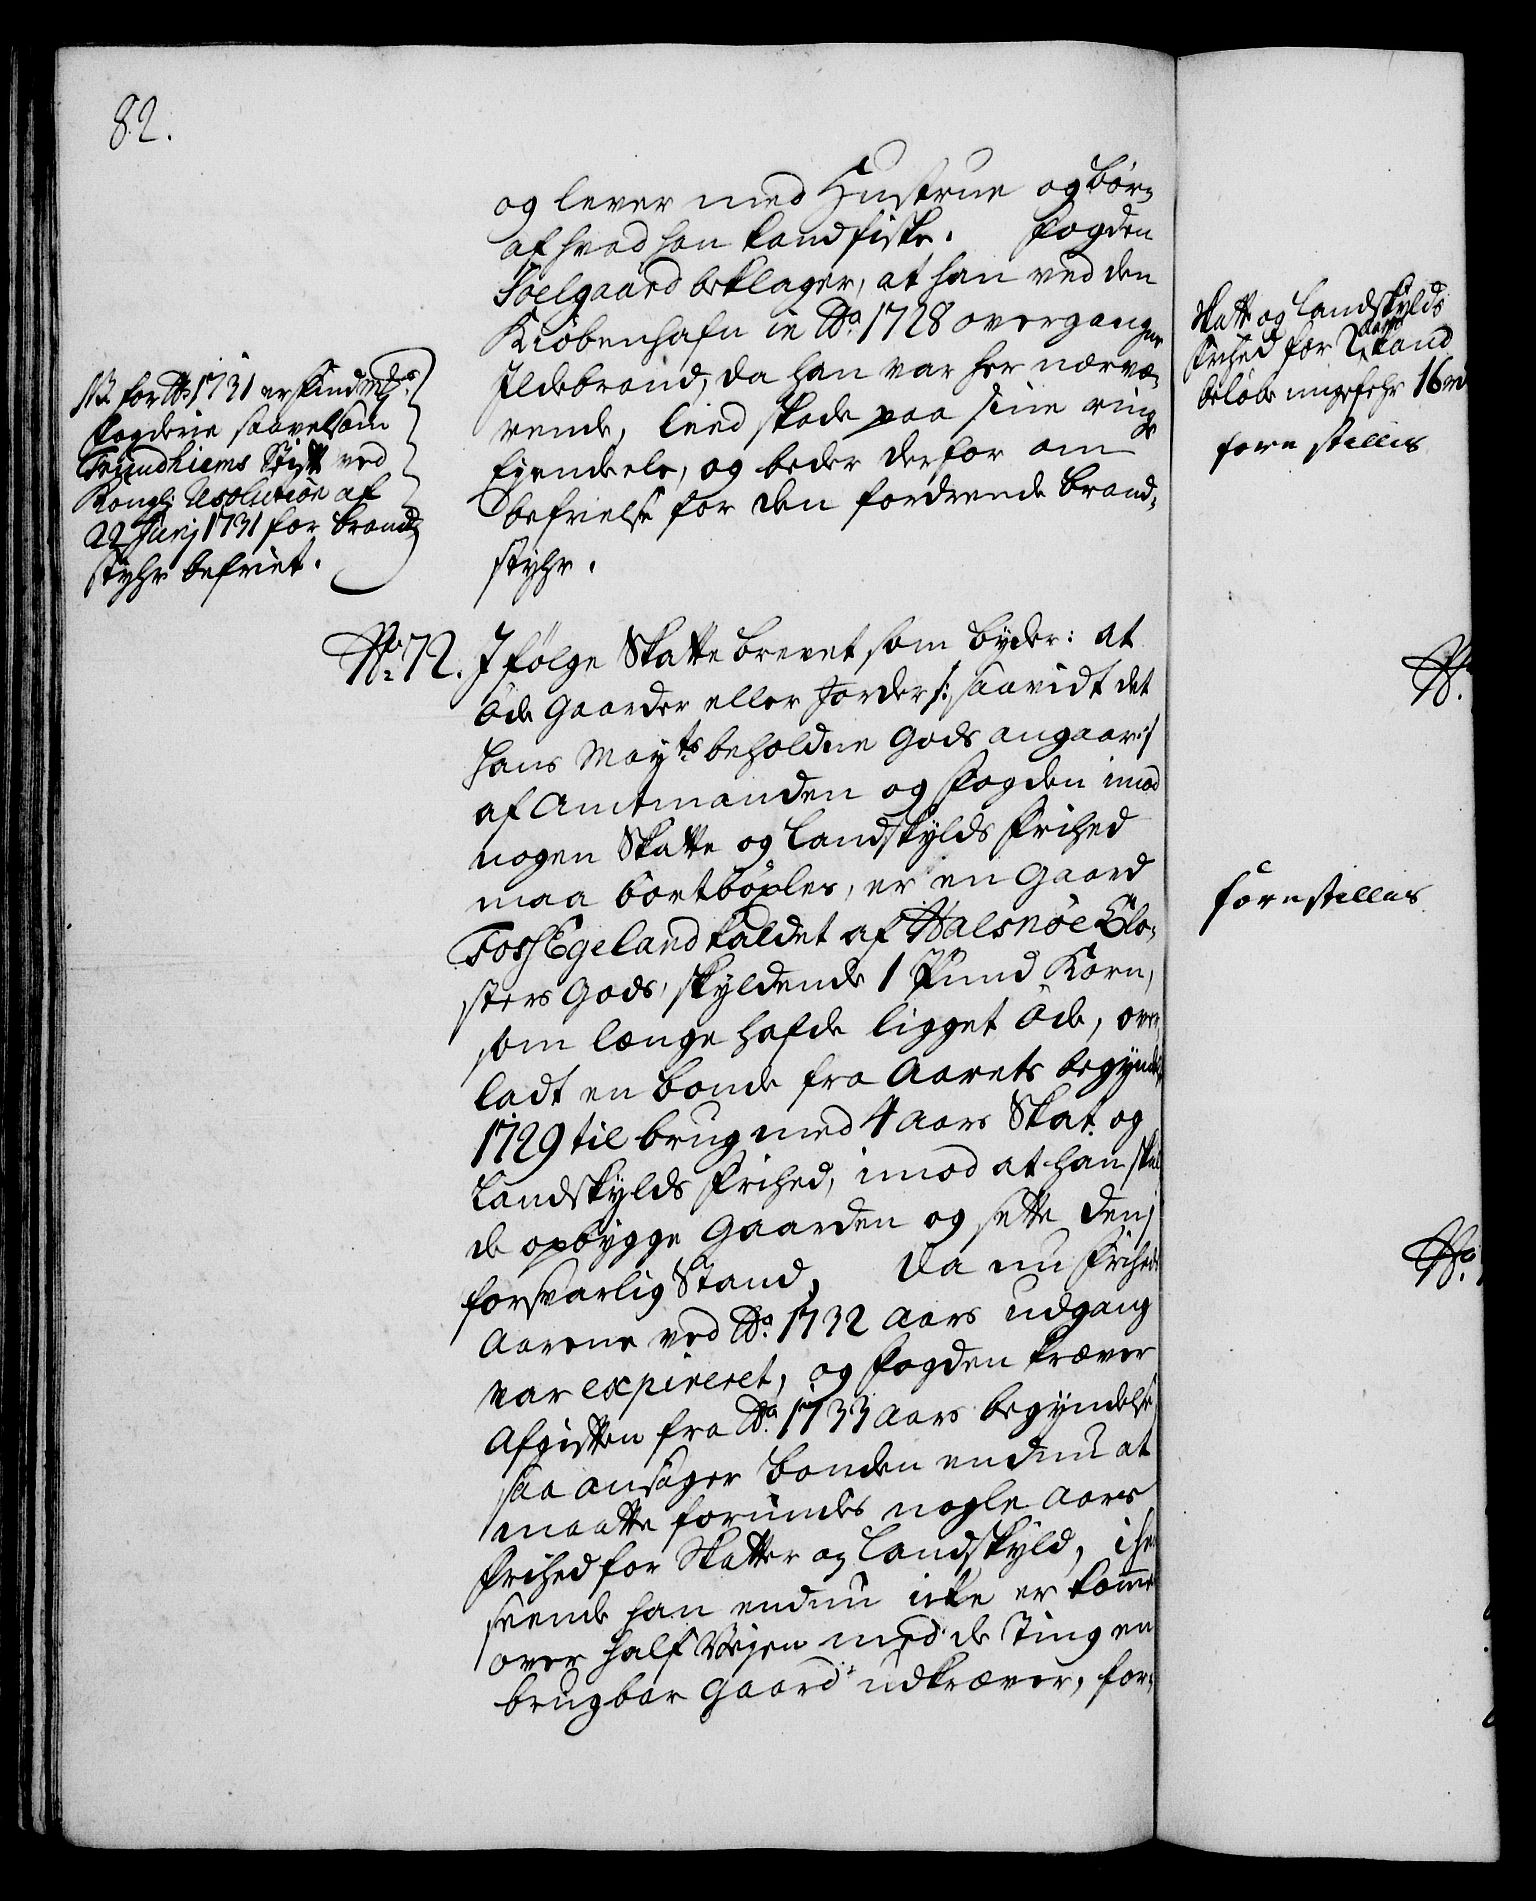 82.
og lever med Hustrue og Børn
af hvad han kand fiske. Fogden
Soelgaard beklager, at han ved den
Kiöbenhafn in Aº 1728 overgangne
Ildebrand, da han var her nærvæ-
rende, leed skade paa sine ringe
Ejendeele, og beder derfor om
befrielse for den fordrende Brand-
styhr.
NB. for Aº 1731 er
Fogderie saavelsom
Trundhiems Stift ved
Kongl: Resolution af
22 Junj 1731 for brand
styhr befriet.
Nº 72. Ifølge Skatte brevet som byder: at
öde Gaarder eller Jorder /: saavidt det
Hans Mayts beholdne Gods angaar :/
af Amtmanden og Fogden imod
nogen Skatte og Landskylds Frihed
maa bortböxles, er en Gaard
Foss Egeland kaldet af Halsnöe Clo-
sters Gods, skyldende 1 Pund Korn,
som længe hafde ligget öde, over
ladt en bonde fra Aarets begyndelse
1729 til brug med 4 Aars Skat og
Landskylds Frihed, imod at han skul
de opbygge Gaarden og sette den j
forsvarlig Stand, Da nu Friheds
Aarene ved Aº 1732 Aars udgang
var expireret, og Fogden kræver
Afgiften fra Aº 1733 Aars begyndelse
saa ansöger bonden endnu at
maatte forundes nogle Aars
Frihed for Skatter og Landskyld, i hen
seende han endnu icke er komme
over half Vejen med de Ting en
brugbar Gaard udkræver, for-
Skatt og Landskylds
Frihed for 2 aar kand
belöbe ungefehr 16 rd
forestilles
Nº
forestilles
Nº